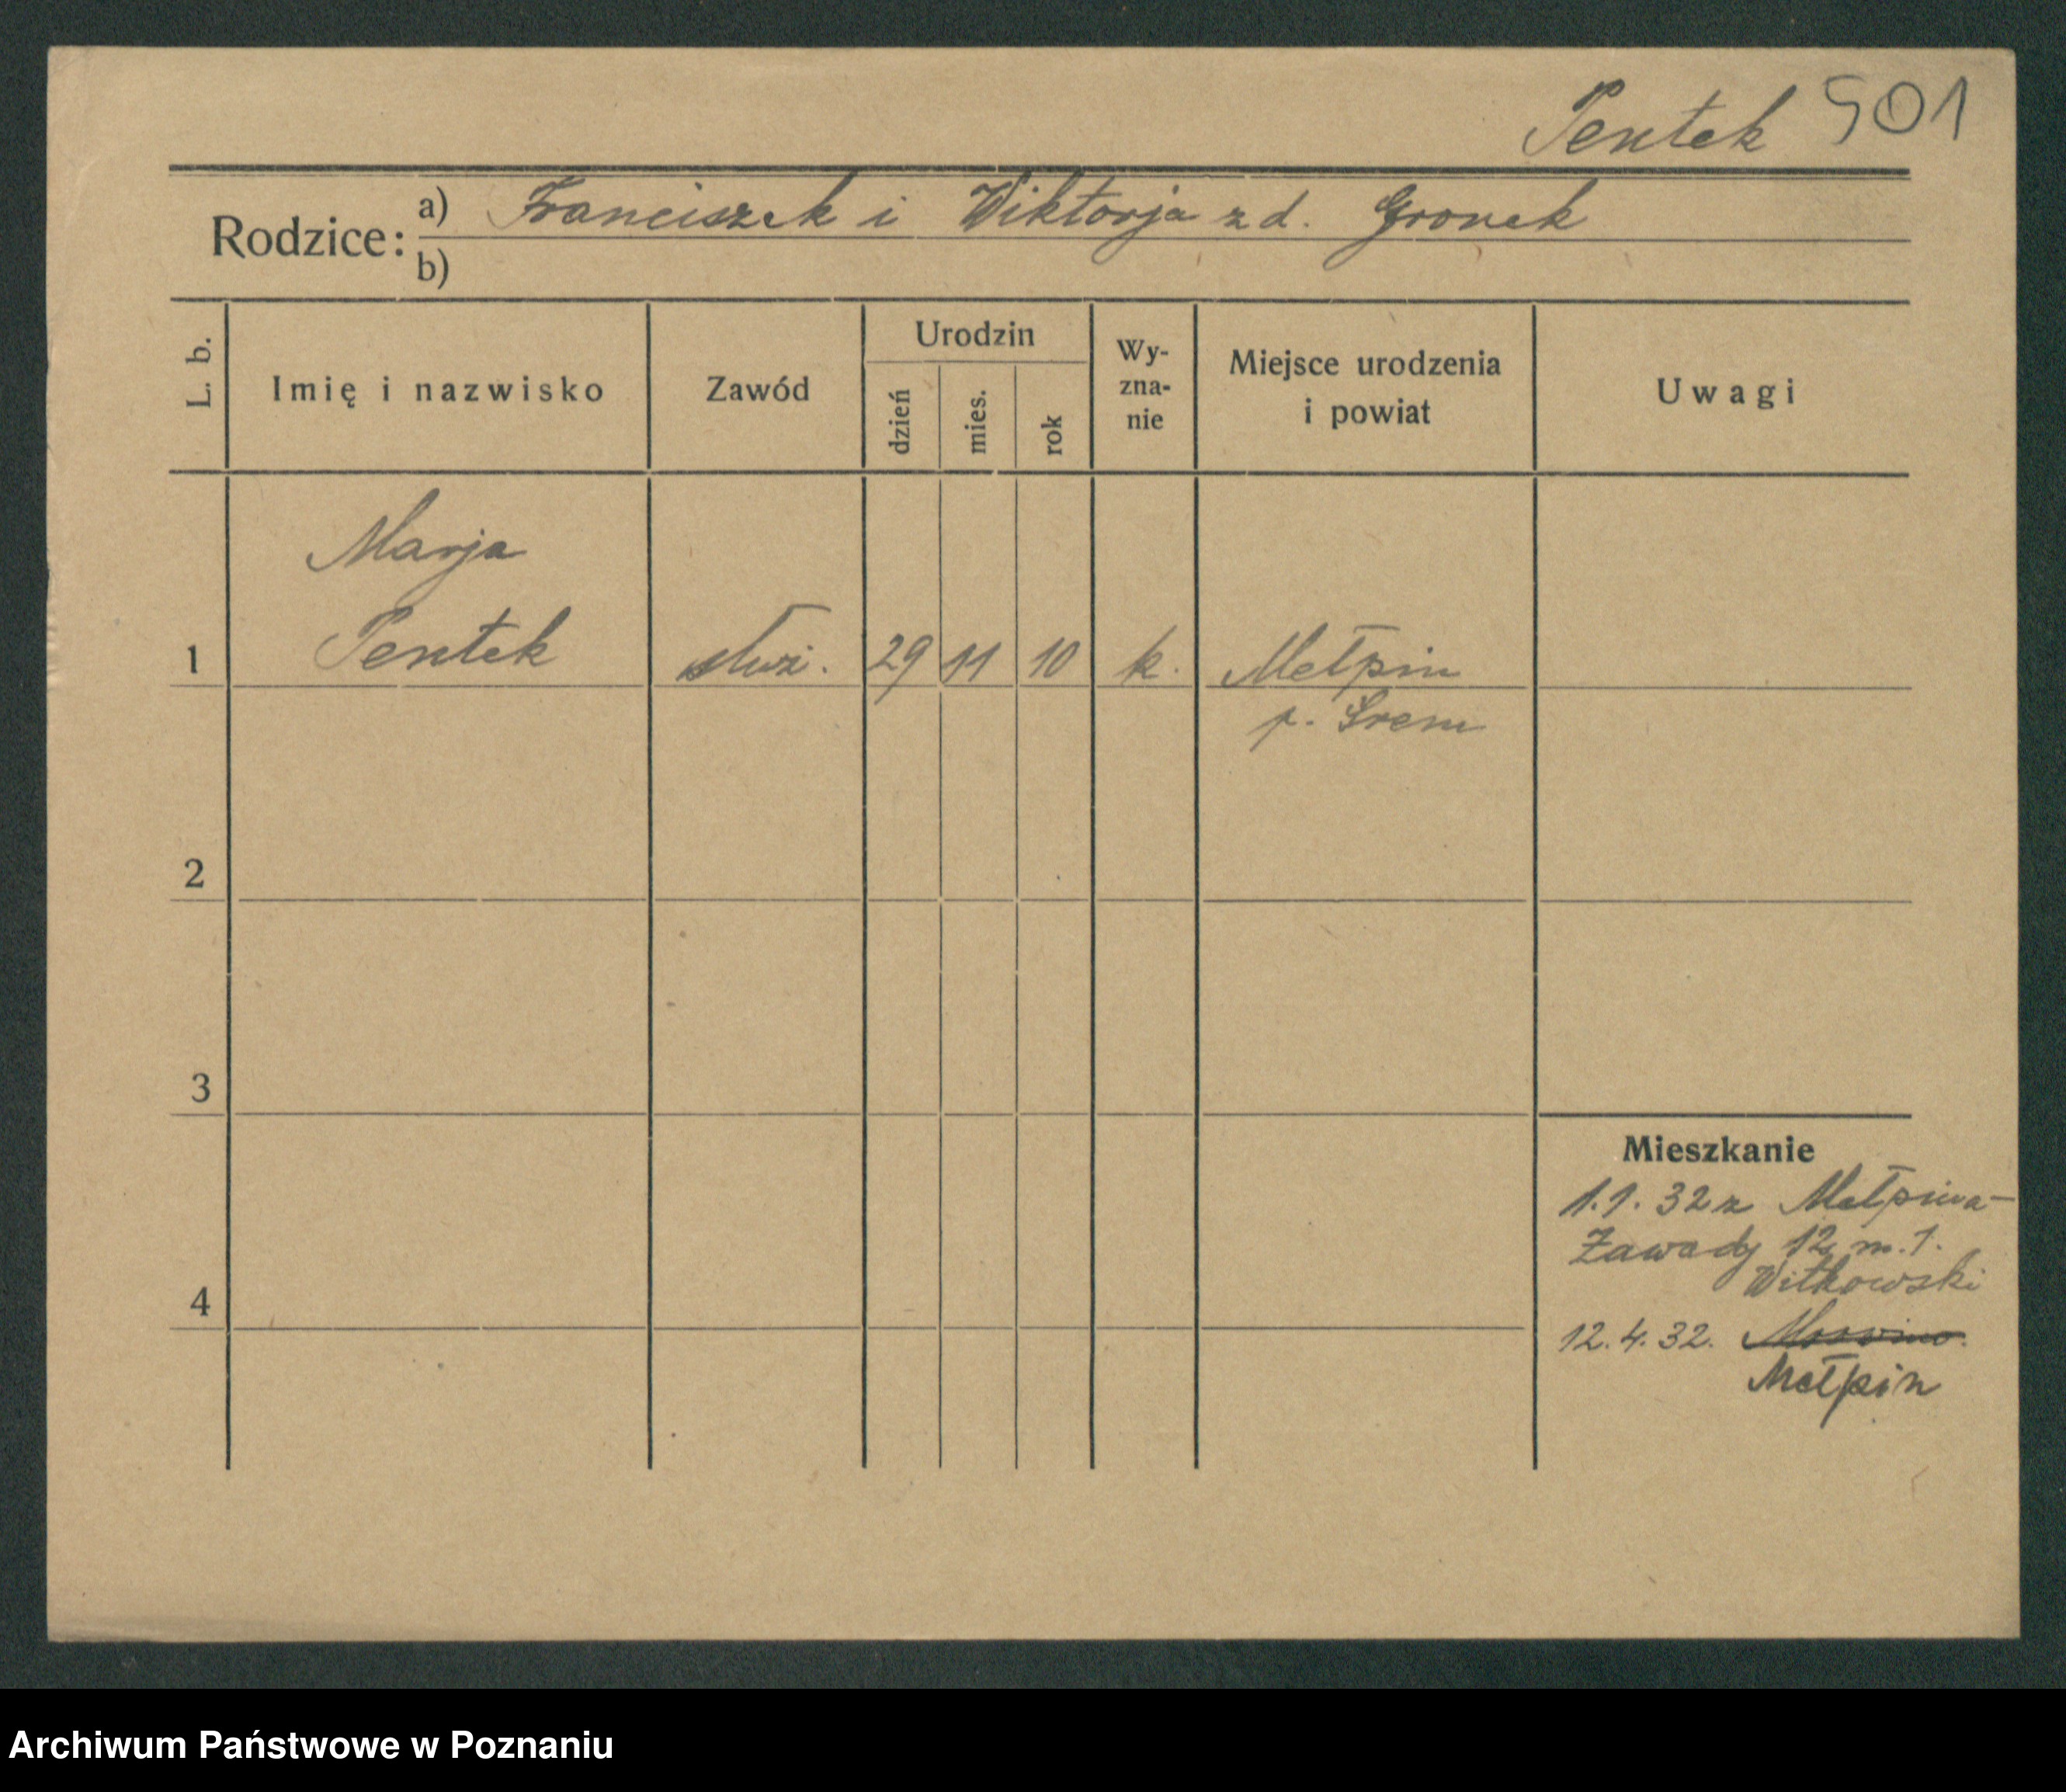 Pentek 501
Rodzice: a) Franciszek i Wiktorja z d. Gronek
b)
L. b.
Imię i nazwisko
Zawód
Urodzin
dzień
mies.
rok
Wy-
zna-
nie
Miejsce urodzenia
i powiat
Uwagi
Marja
1 Pentek służ. 29 11 10 k. Mełpin
p. Śrem
2
3
4
Mieszkanie
1.1.32 z Mełpina-
Zawady 12 m.1.
Witkowski
12.4.32.
Mełpin
Archiwum Państwowe w Poznaniu